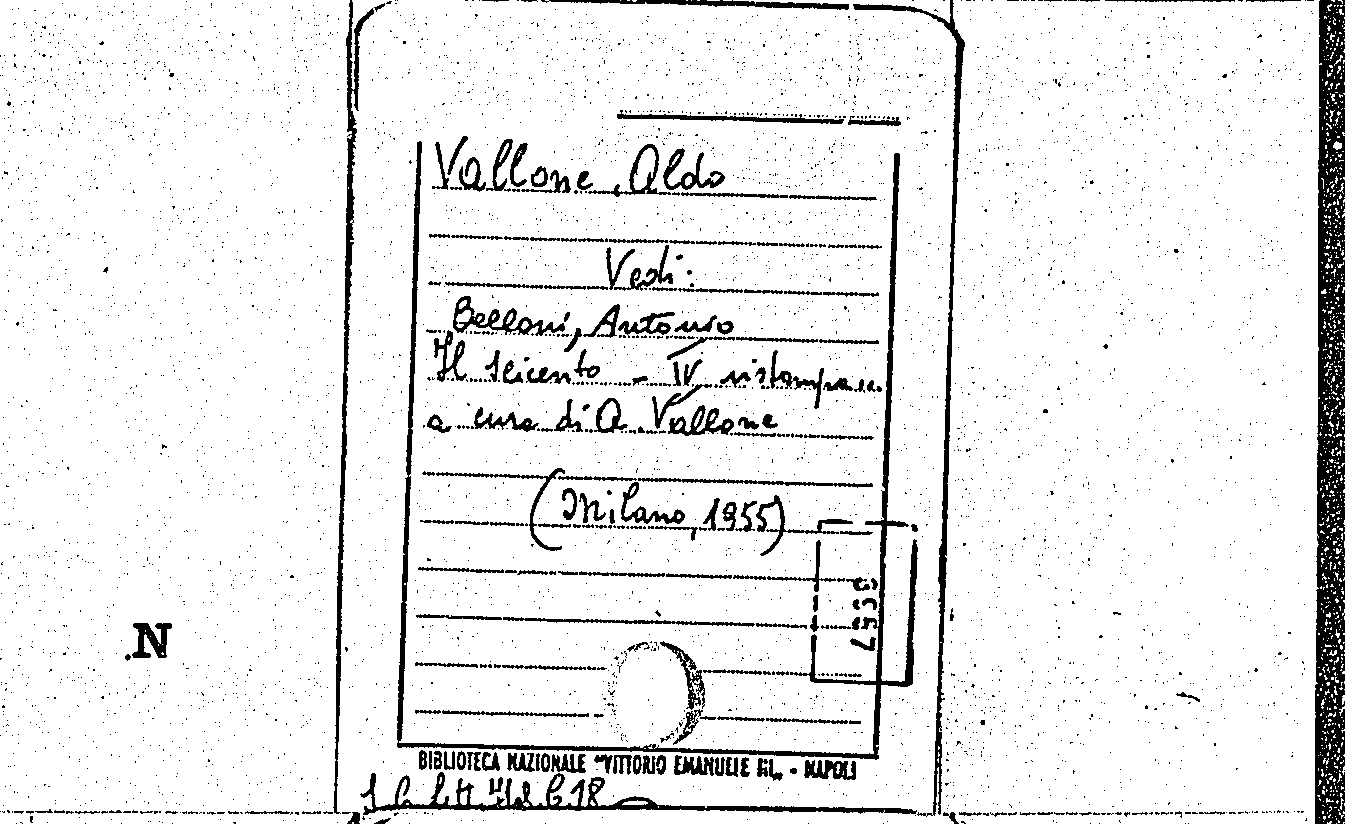 Vallone, Aldo
Vedi:
Belloni, Antonio
Il Seicento - IV ristampa...
a cura di A. Vallone
(Milano, 1955)
N
BIBLIOTECA NAZIONALE "VITTORIO EMANUELE III„ - NAPOLI